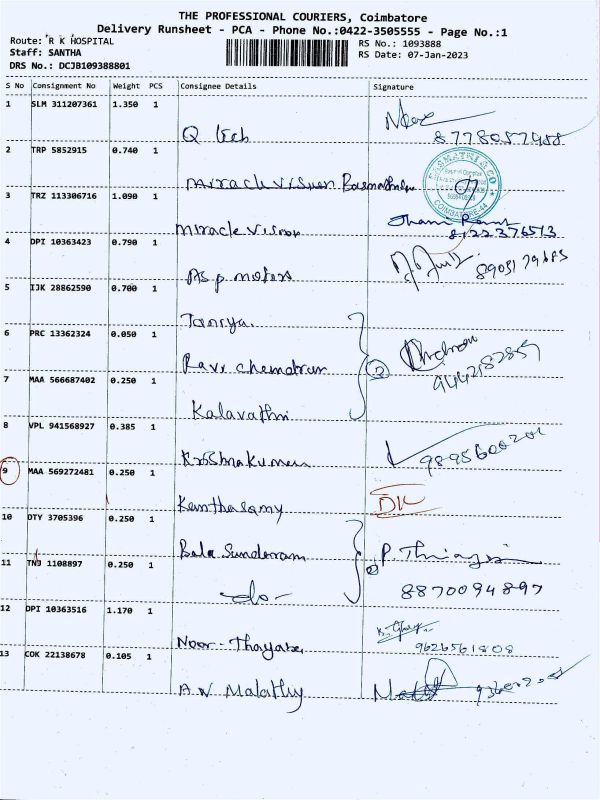 THE PROFESSIONAL COURIERS, Coimbatore
Delivery Runsheet - PCA - Phone No.:0422-3505555 - Page No.:1
Route: R K HOSPITAL
RS No.: 1093888
Staff: SANTHA
RS Date: 07-Jan-2023
DRS No.: DCJB109388801
S No Consignment No Weight PCS Consignee Details Signature
1 SLM 311207361 1.350 1
Q tech 8778057988
2 TRP 5852915 0.740 1
miracle vision
3 TRZ 113306716 1.090 1
miracle vision 8122376513
4 DPI 10363423 0.790 1
As p motors
5 IJK 28862590 0.700 1
Taniya
6 PRC 13362324 0.050 1
Ravi chandran
7 MAA 566687402 0.250 1
Kalavathi
8 VPL 941568927 0.385 1
Krishnakumar
9 MAA 569272481 0.250 1
Kanthasamy
10 DTY 3705396 0.250 1
Bala Sundaram
11 TNJ 1108897 0.250 1
-do- 8870094897
12 DPI 10363516 1.170 1
Noor-Thayaba 9626561808
13 COK 22138678 0.105 1
A.V Malathy